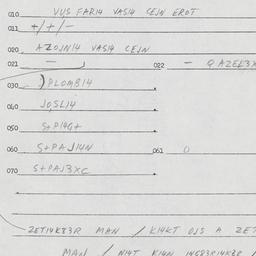 010 VUS FARI4 VASI4 CEJN EROT
011 +/+/-
020 AZOJNI4 VASI4 CEJN
021 — 022 — QAZEL3X
030 PLOMBI4
040 JOSLI4
050 S+PI4G+
060 S+PAJI4N 061 0
070 S+PAJ3XC
ZETI4K83R MAN / KI4KT OJS A ZET
MAN / NI4T KI4N